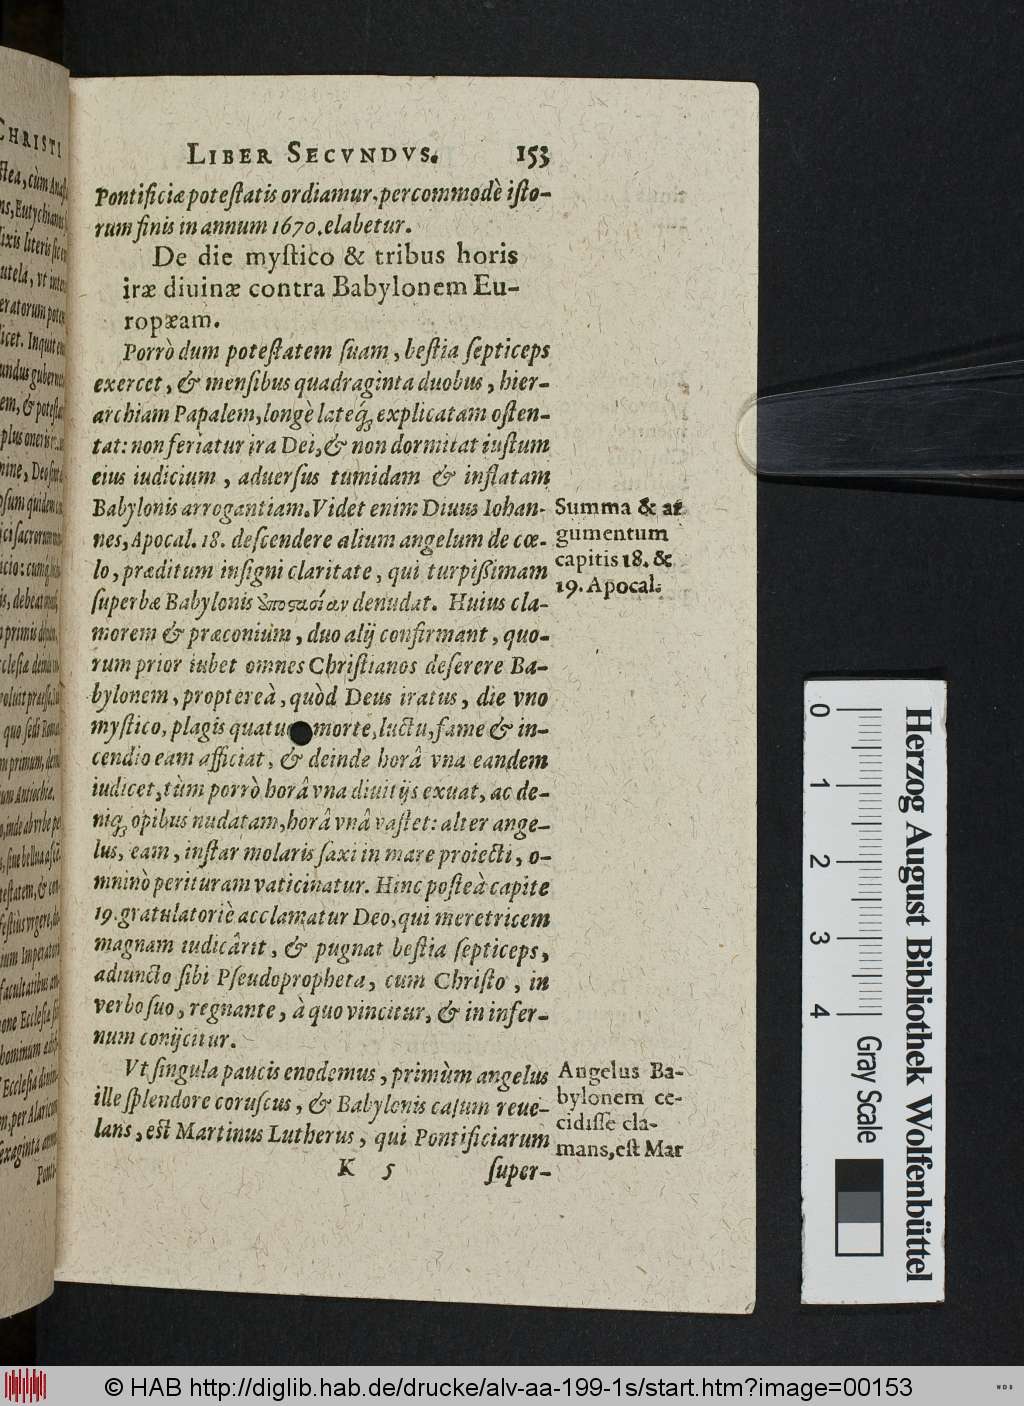 LIBER SECVNDVS. 153
Pontificiæ poteſtatis ordiamur, percommodè iſto-
rum finis in annum 1670. elabetur.
De die myſtico & tribus horis
iræ diuinæ contra Babylonem Eu-
ropæam.
Porrò dum poteſtatem ſuam, beſtia ſepticeps
exercet, & menſibus quadraginta duobus, hier-
archiam Papalem, longè lateq́; explicatam oſten-
tat: non feriatur ira Dei, & non dormitat iuſtum
eius iudicium, aduerſus tumidam & inflatam
Babylonis arrogantiam. Videt enim Diuus Iohan-
nes, Apocal. 18. deſcendere alium angelum de cœ-
lo, præditum inſigni claritate, qui turpißimam
ſuperbæ Babylonis denudat. Huius cla-
morem & præconium, duo alij confirmant, quo-
rum prior iubet omnes Chriſtianos deſerere Ba-
bylonem, proptereà, quòd Deus iratus, die vno
myſtico, plagis quatu morte, luctu, fame & in-
cendio eam afficiat, & deinde horâ vna eandem
iudicet, tùm porrò horâ vna diuitijs exuat, ac de-
niq; opibus nudatam, horâ vnâ vaſtet: alter ange-
lus, eam, inſtar molaris ſaxi in mare proiecti, o-
mninò perituram vaticinatur. Hinc poſteà capite
19. gratulatoriè acclamatur Deo, qui meretricem
magnam iudicârit, & pugnat beſtia ſepticeps,
adiuncto ſibi Pſeudopropheta, cum Chriſto, in
verbo ſuo, regnante, à quo vincitur, & in infer-
num conijcitur.
Vt ſingula paucis enodemus, primùm angelus
ille ſplendore coruſcus, & Babylonis caſum reue-
lans, eſt Martinus Lutherus, qui Pontificiarum
K 5 ſuper-
Summa & ar
gumentum
capitis 18. &
19. Apocal.
Angelus Ba-
bylonem ce-
cidiſſe cla-
mans, eſt Mar
CHRISTI
Herzog August Bibliothek Wolfenbüttel
0 1 2 3 4 Gray Scale
© HAB http://diglib.hab.de/drucke/alv-aa-199-1s/start.htm?image=00153